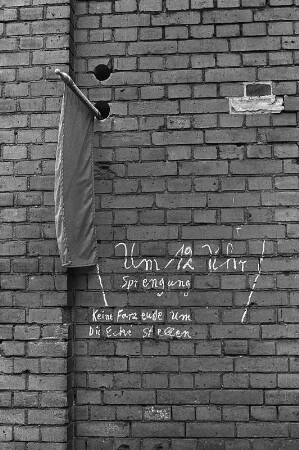 Um 12 Uhr
Sprengung
Keine Farzeude um
Die Ecke stellen